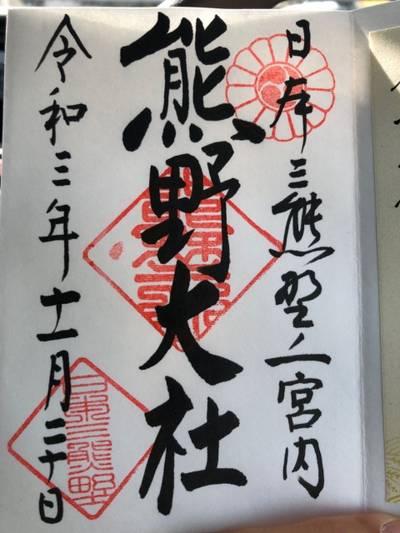 日本三熊野之一宮内
熊野大社
令和三年十一月二十日
日本三熊野